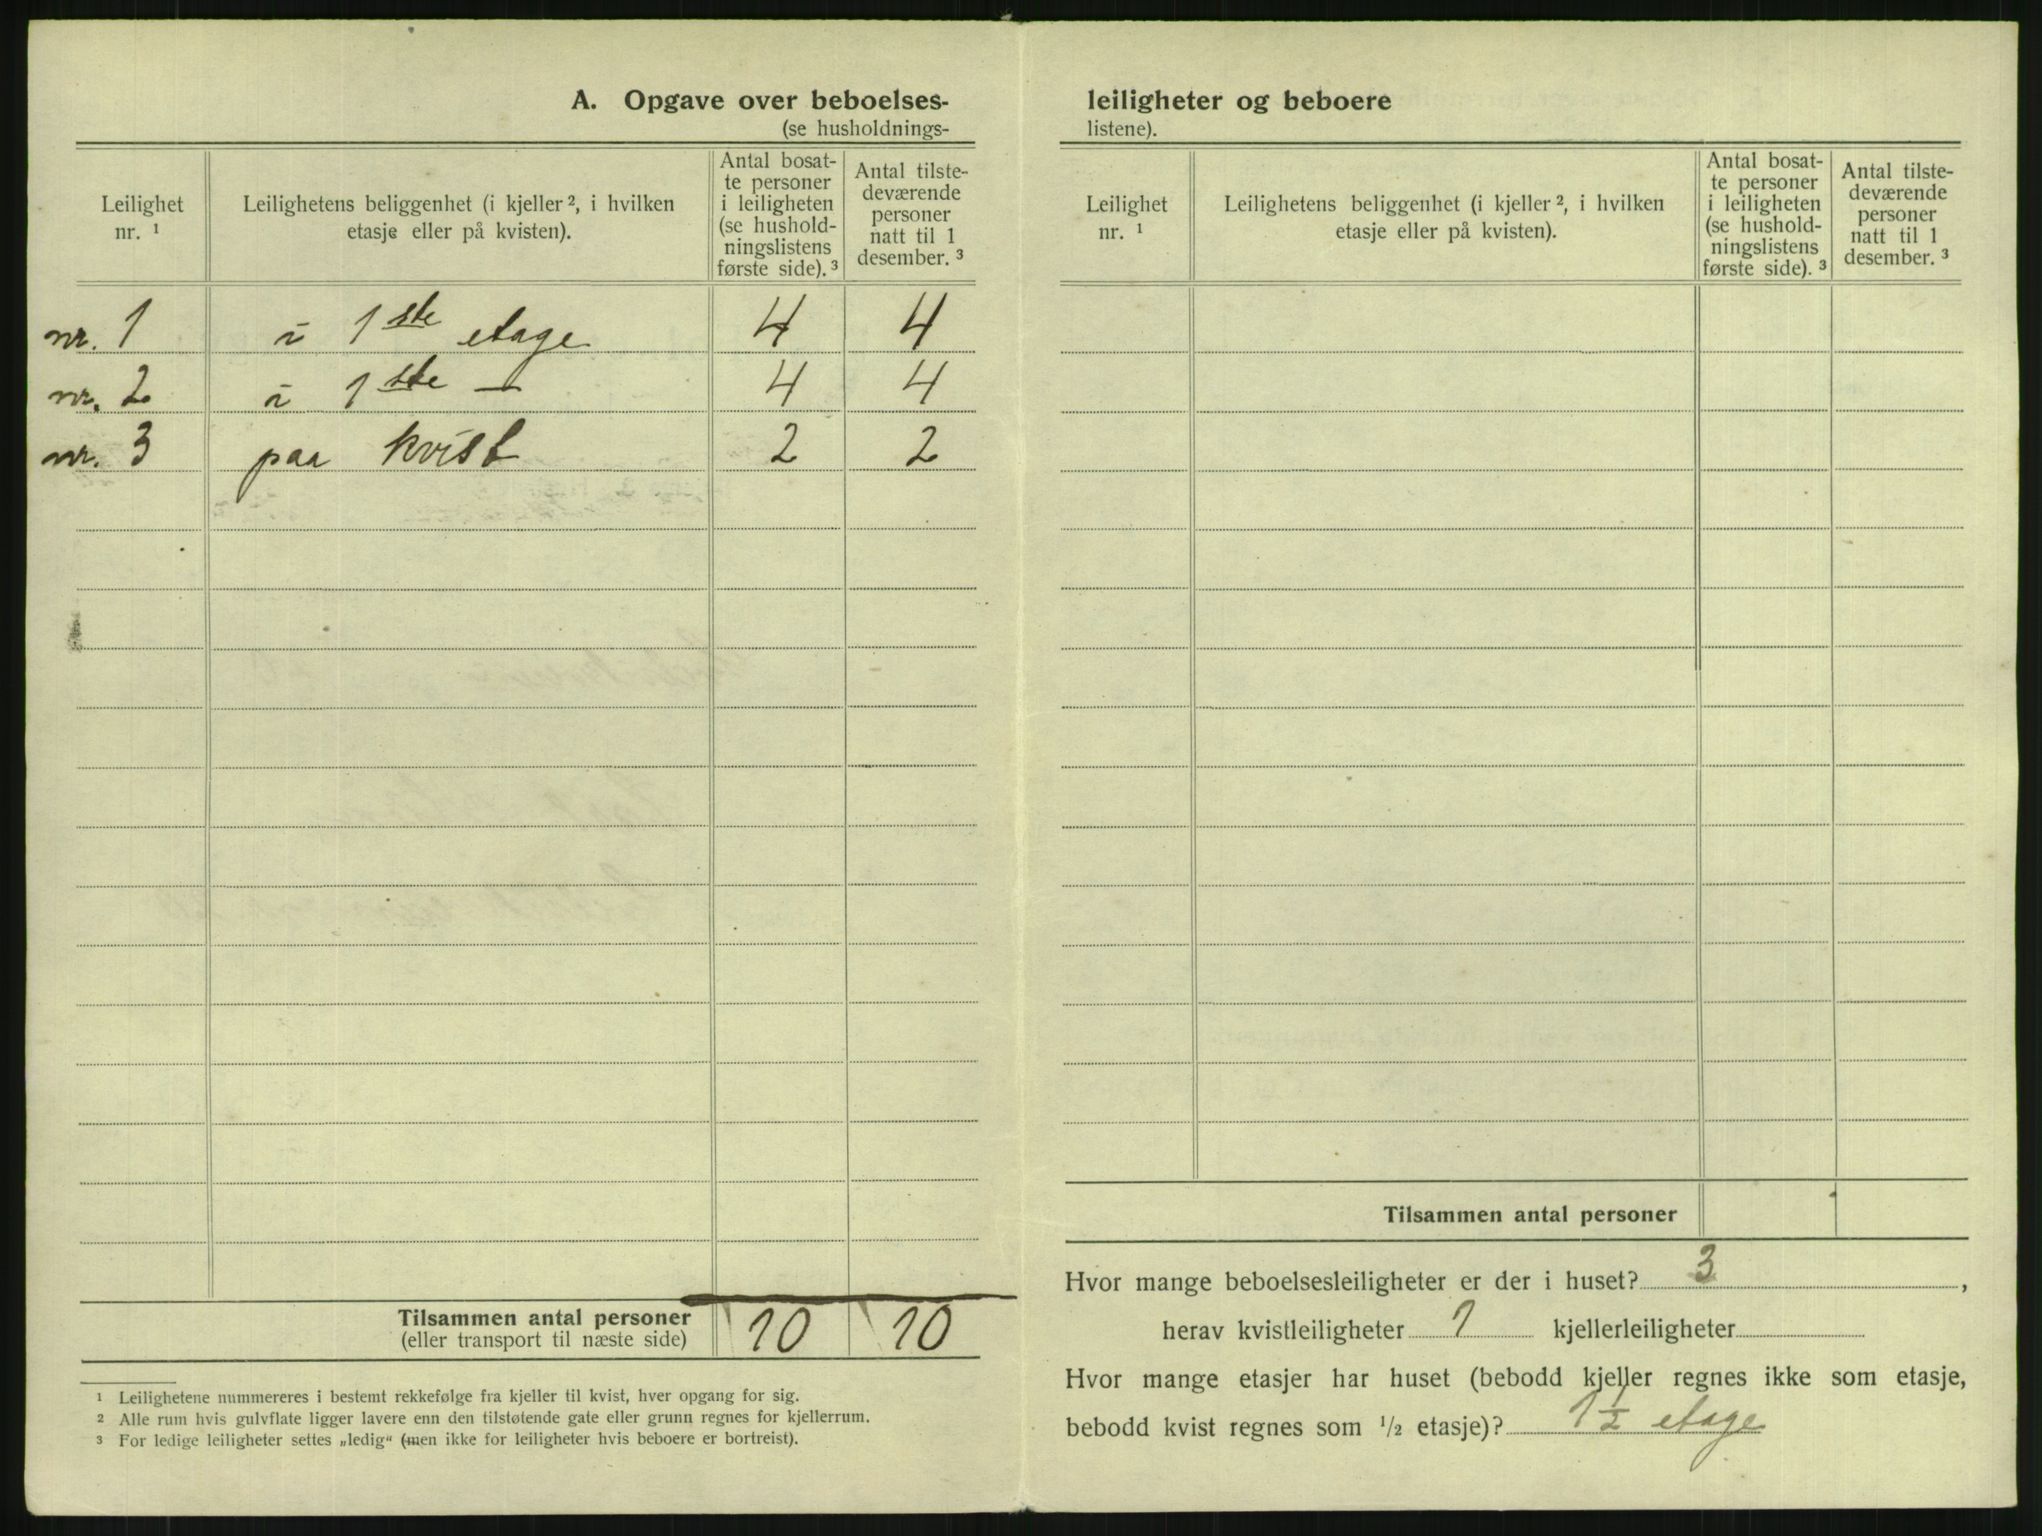 A. Opgave over beboelses-
(se husholdnings-
Leilighet nr. ¹
Leilighetens beliggenhet (i kjeller ², i hvilken etasje eller på kvisten).
Antal bosat-
te personer
i leiligheten
(se hushold-
ningslistens
første side). ³
Antal tilste-
deværende
personer
natt til 1
desember. ³
nr. 1 i 1ste etage 4 4
nr. 2 i 1ste — 4 4
nr. 3 paa kvist 2 2
Tilsammen antal personer 10 10
(eller transport til næste side)
¹ Leilighetene nummereres i bestemt rekkefølge fra kjeller til kvist, hver opgang for sig.
² Alle rum hvis gulvflate ligger lavere enn den tilstøtende gate eller grunn regnes for kjellerrum.
³ For ledige leiligheter settes „ledig“ (men ikke for leiligheter hvis beboere er bortreist).
leiligheter og beboere
listene).
Leilighet nr. ¹
Leilighetens beliggenhet (i kjeller ², i hvilken etasje eller på kvisten).
Antal bosat-
te personer
i leiligheten
(se hushold-
ningslistens
første side). ³
Antal tilste-
deværende
personer
natt til 1
desember. ³
Tilsammen antal personer
Hvor mange beboelsesleiligheter er der i huset? 3 ,
herav kvistleiligheter 1 kjellerleiligheter
Hvor mange etasjer har huset (bebodd kjeller regnes ikke som etasje,
bebodd kvist regnes som ½ etasje)? 1 ½ etage